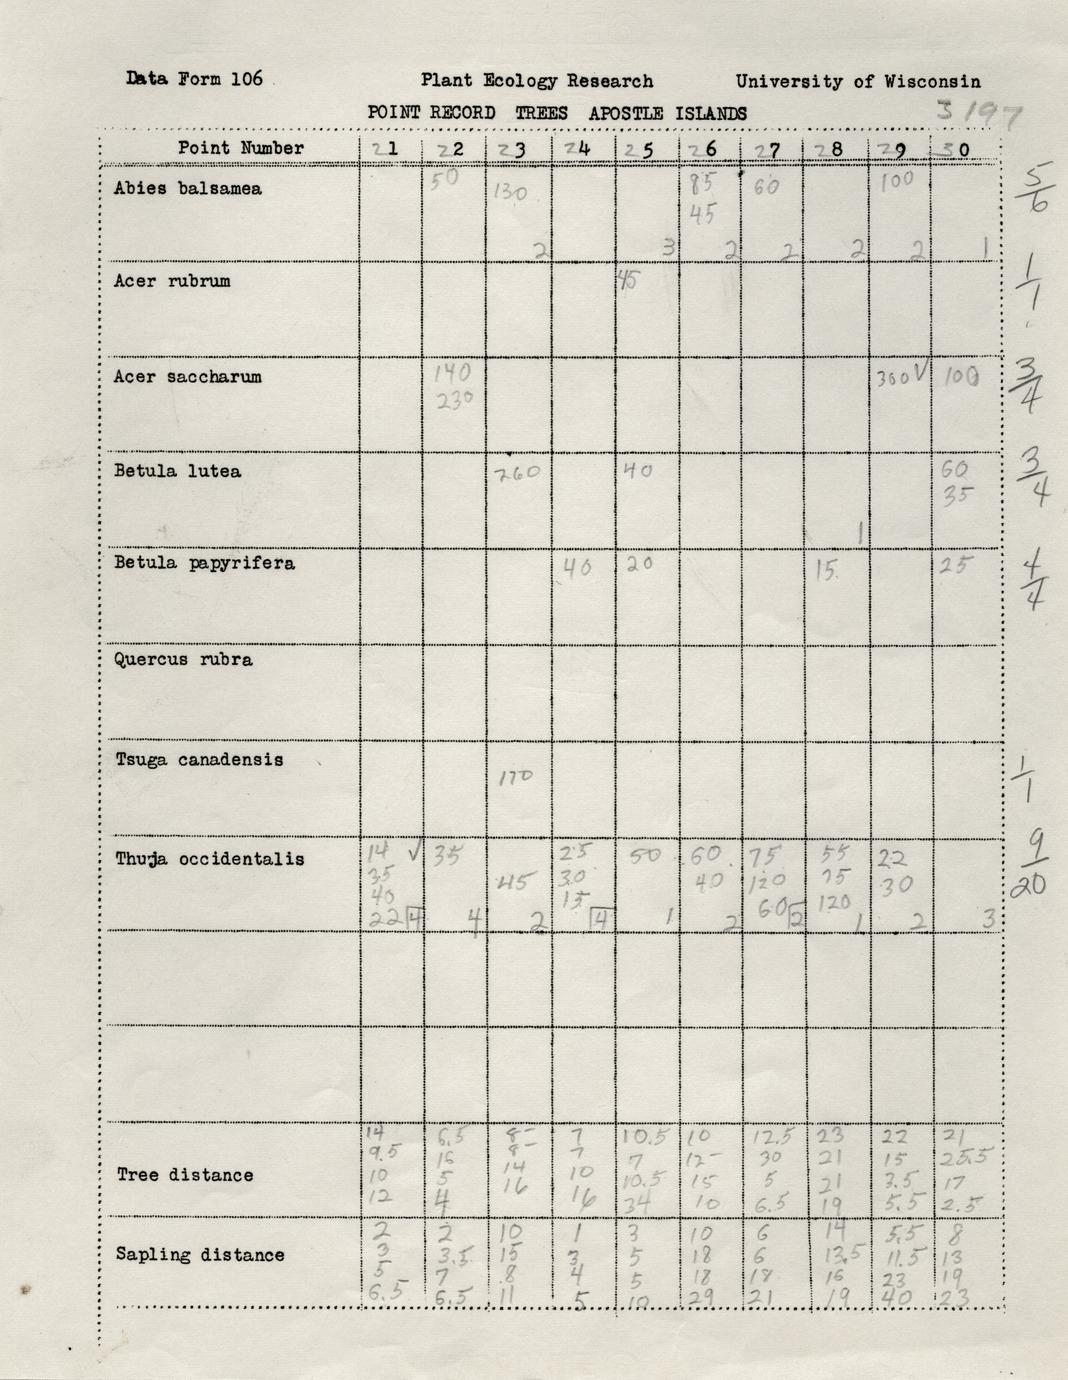 Data Form 106 Plant Ecology Research University of Wisconsin
POINT RECORD TREES APOSTLE ISLANDS 3197
Point Number 21 22 23 24 25 26 27 28 29 30
Abies balsamea 50 130 85 60 100 5/6
45
2 3 2 2 2 2 1
Acer rubrum 45 1/1
Acer saccharum 140 300√ 100 3/4
230
Betula lutea 260 40 60 3/4
35
1
Betula papyrifera 40 20 15 25 4/4
Quercus rubra
Tsuga canadensis 170 1/1
Thuja occidentalis 14 √ 35 25 50 60 75 55 22 9/20
35 45 30 40 120 75 30
40 15 60 120
22 4 4 2 4 1 2 2 1 2 3
14 6.5 8- 7 10.5 10 12.5 23 22 21
9.5 16 8- 7 7 12- 30 21 15 25.5
Tree distance 10 5 14 10 10.5 15 5 21 3.5 17
12 4 16 16 34 10 6.5 19 5.5 2.5
2 2 10 1 3 10 6 14 5.5 8
Sapling distance 3 3.5 15 3 5 18 6 13.5 11.5 13
5 7 8 4 5 18 18 16 23 19
6.5 6.5 11 5 10 29 21 19 40 23